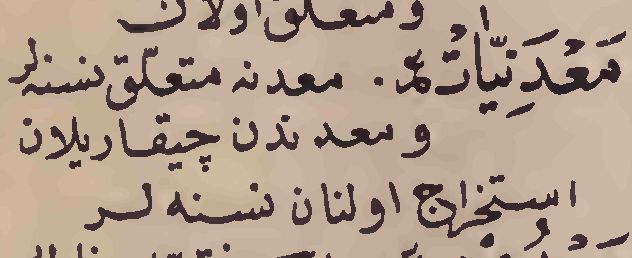 ومتعلق اولان
مَعْدَنِیَّاتْ عر. معدنه متعلّق نسنه لر
و معدندن چیقاریلان
استخراج اولنان نسنه لر